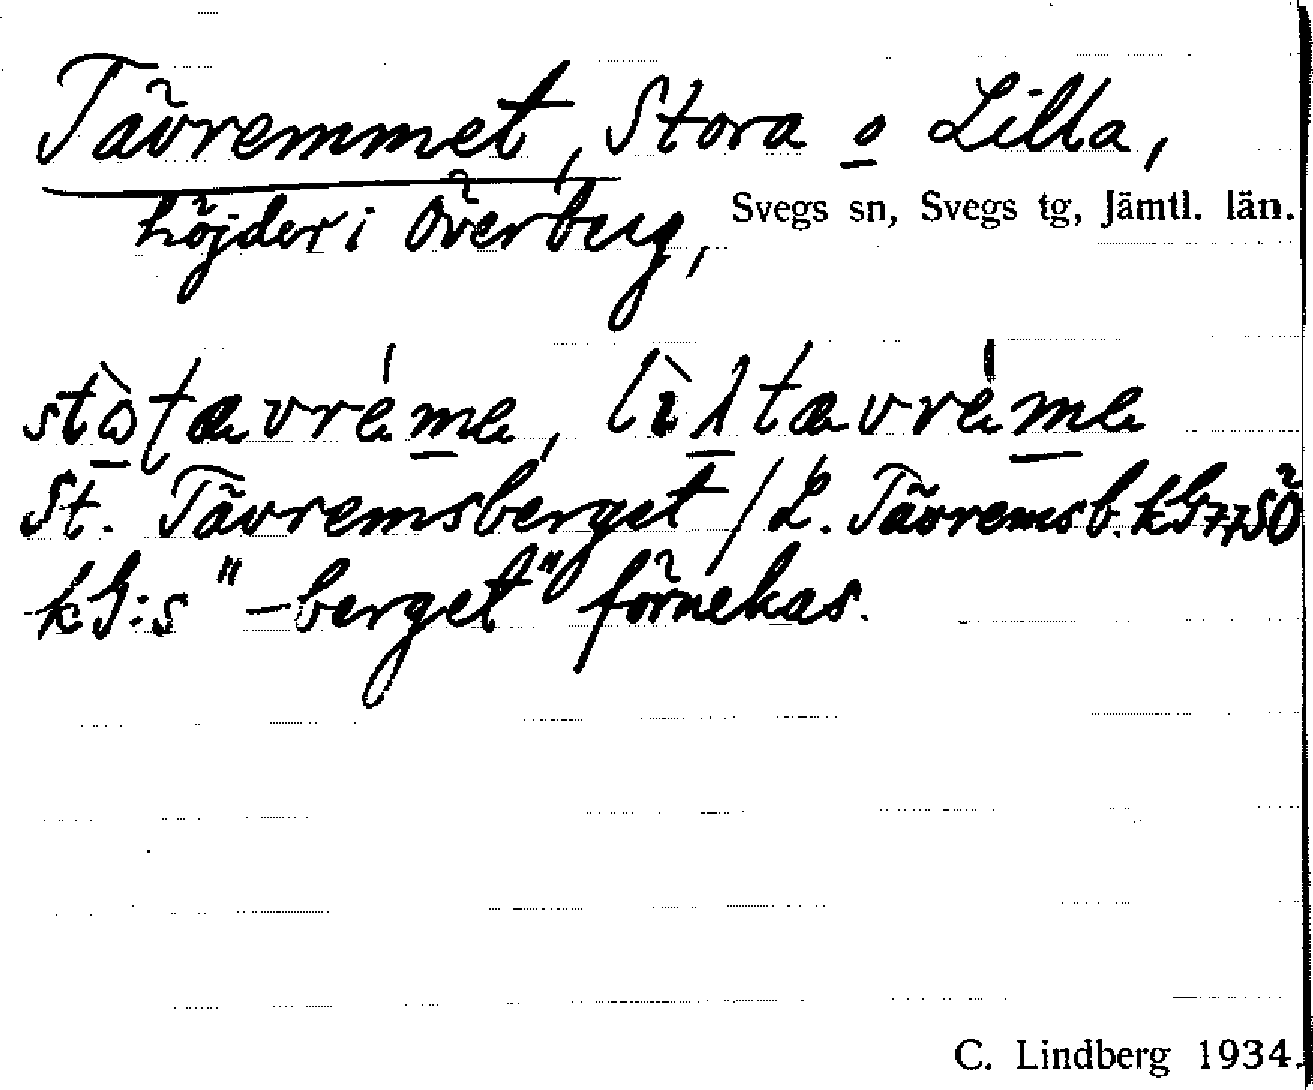 Tävremmet, Stora o Lilla,
höjder i Överberg, Svegs sn, Svegs tg, Jämtl. län.
St. Tävremsberget / L. Tävremsb. kG 77 SÖ
kG:s "-berget" förnekas.
C. Lindberg 1934.